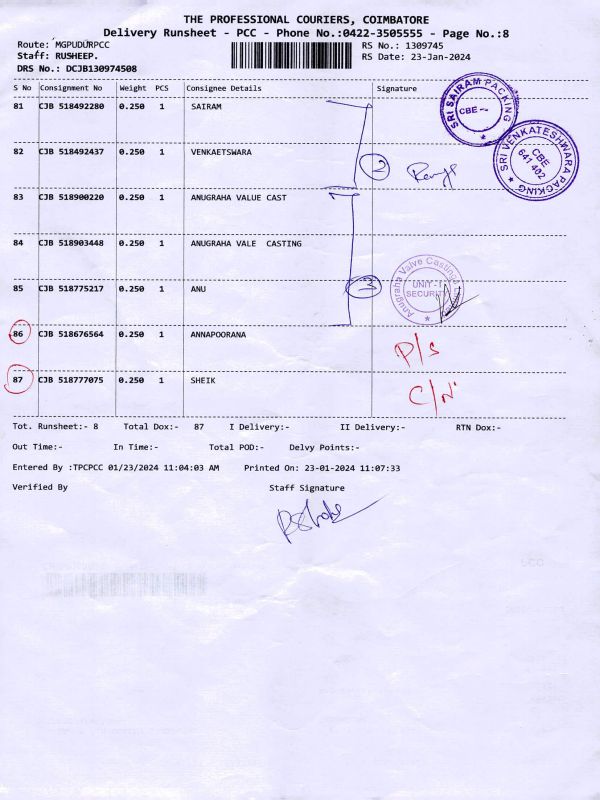 THE PROFESSIONAL COURIERS, COIMBATORE
Delivery Runsheet - PCC - Phone No.:0422-3505555 - Page No.:8
Route: MGPUDURPCC RS No.: 1309745
Staff: RUSHEEP. RS Date: 23-Jan-2024
DRS No.: DCJB130974508
S No Consignment No Weight PCS Consignee Details Signature
81 CJB 518492280 0.250 1 SAIRAM
SRI SAIRAM PACKING CBE
82 CJB 518492437 0.250 1 VENKAETSWARA
2
SRI VENKATESHWARA PACKING CBE 641 402
83 CJB 518900220 0.250 1 ANUGRAHA VALUE CAST
84 CJB 518903448 0.250 1 ANUGRAHA VALE CASTING
85 CJB 518775217 0.250 1 ANU
3
Anugraha Valve Castings UNIT-I SECURITY
86 CJB 518676564 0.250 1 ANNAPOORANA
P/S
87 CJB 518777075 0.250 1 SHEIK
C/N
Tot. Runsheet:- 8 Total Dox:- 87 I Delivery:- II Delivery:- RTN Dox:-
Out Time:- In Time:- Total POD:- Delvy Points:-
Entered By :TPCPCC 01/23/2024 11:04:03 AM Printed On: 23-01-2024 11:07:33
Verified By Staff Signature